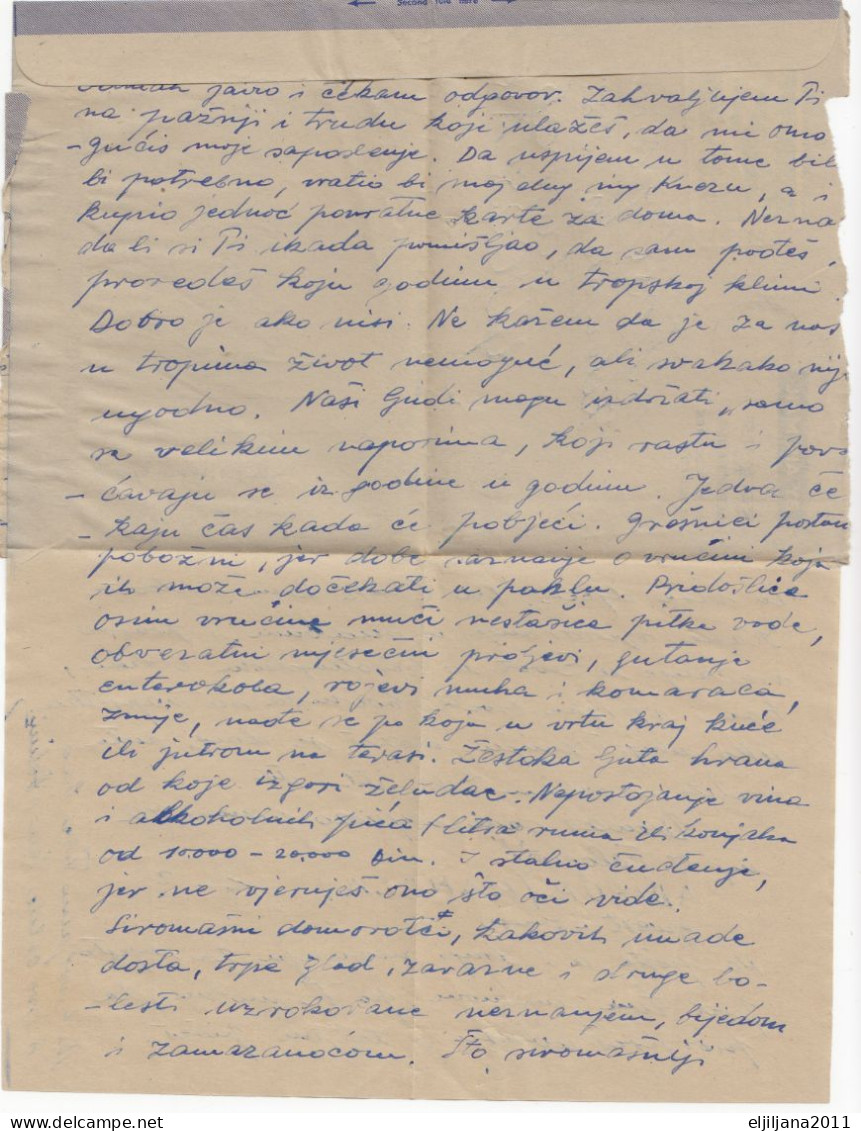 Second fold here
javio i čekam odgovor. Zahvaljujem Ti
na pažnji i trudu koji ulažeš, da mi omo
-gućis moje zaposlenje. Da uspijem u tome bil
bi potrebno, vratio bi moj dug ing Knezu, a i
kupio jednoć povratne karte za doma. Nezna
da li si Ti ikada pomišljao, da sam pođeš,
provedeš koju godinu u tropskoj klimi
Dobro je ako nisi. Ne kažem da je za nas
u tropima život nemoguć, ali svakako nij
ugodno. Naši ljudi mogu izdržati, samo
sa velikim naporima, koji rastu i pove
-ćavaju se iz godine u godinu. Jedva če
-kaju čas kada će pobjeći. Grešnici postan
pobožni, jer dobe saznanje o vrućini koja
ih može dočekati u paklu. Pridošlica
osim vrućine muči nestašica pitke vode,
obvezatni mjesečni proljevi, gutanje
enterokola, rojevi muha i komaraca,
zmije, nađe se po koja u vrtu kraj kuće
ili jutrom na terasi. Žestoka ljuta hrana
od koje izgori želudac. Nepostojanje vina
i alkoholnih pića 1 litra ruma ili konjaka
od 10.000 - 20.000 Din. I stalno čuđenje,
jer ne vjeruješ ono što oči vide.
Siromašni domorotci, kakovih imade
dosta, trpe glad, zarazne i druge bo-
-lesti uzrokovane neznanjem, bijedom
i zamazanoćom. Što siromašniji
eljiljana2011